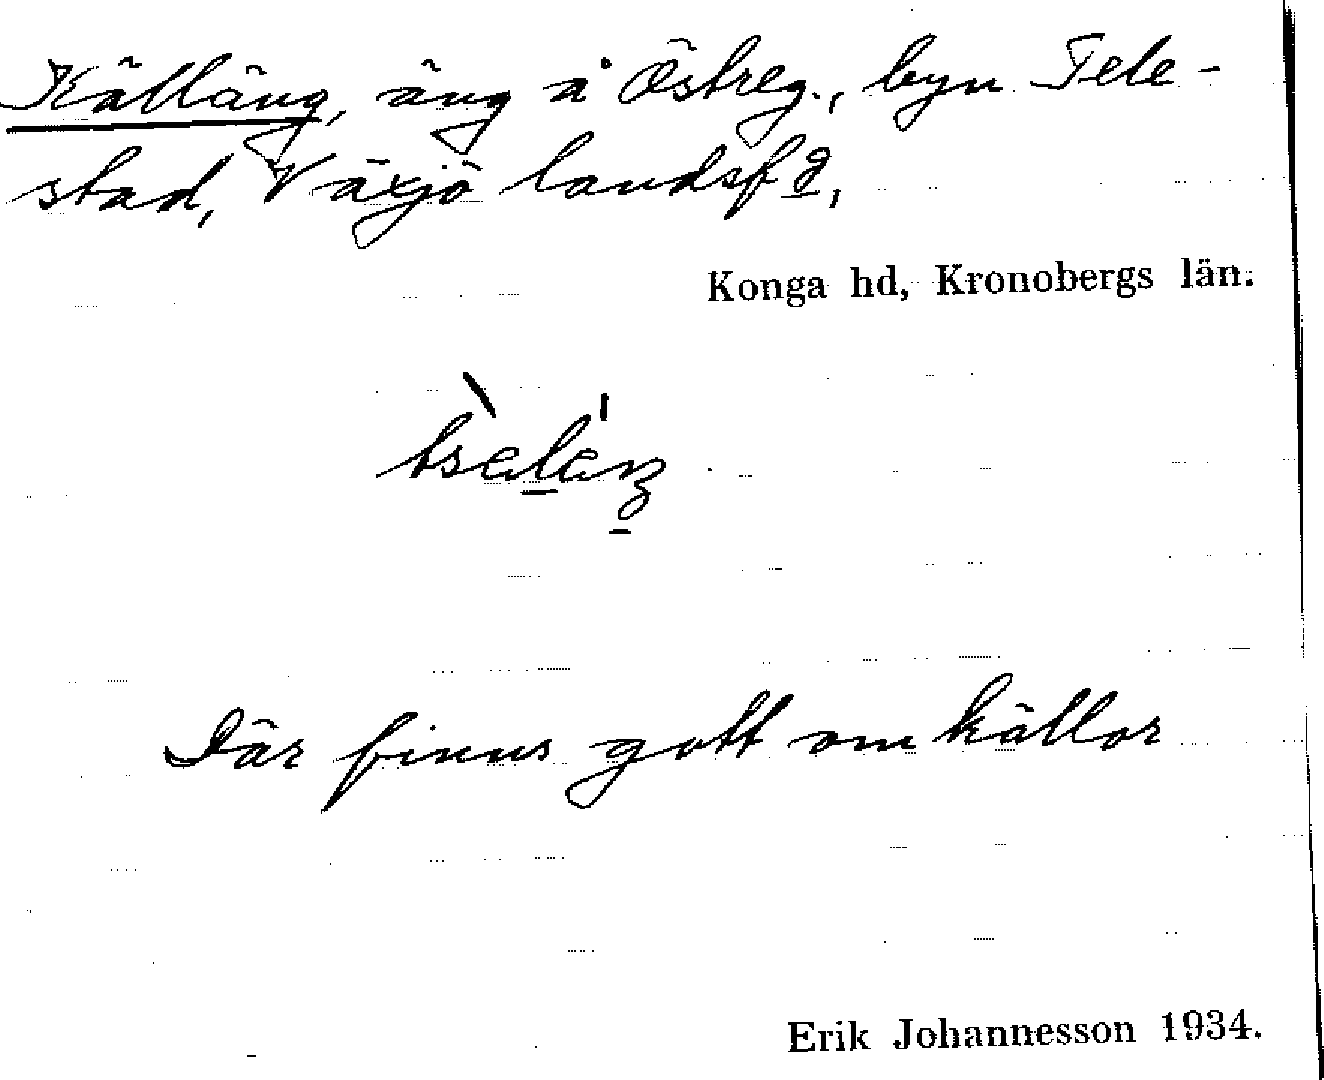 Källäng, äng å Östreg., byn Tele-
stad, Växjö landsf,
Konga hd, Kronobergs län.
Där finns gott om källor
Erik Johannesson 1934.